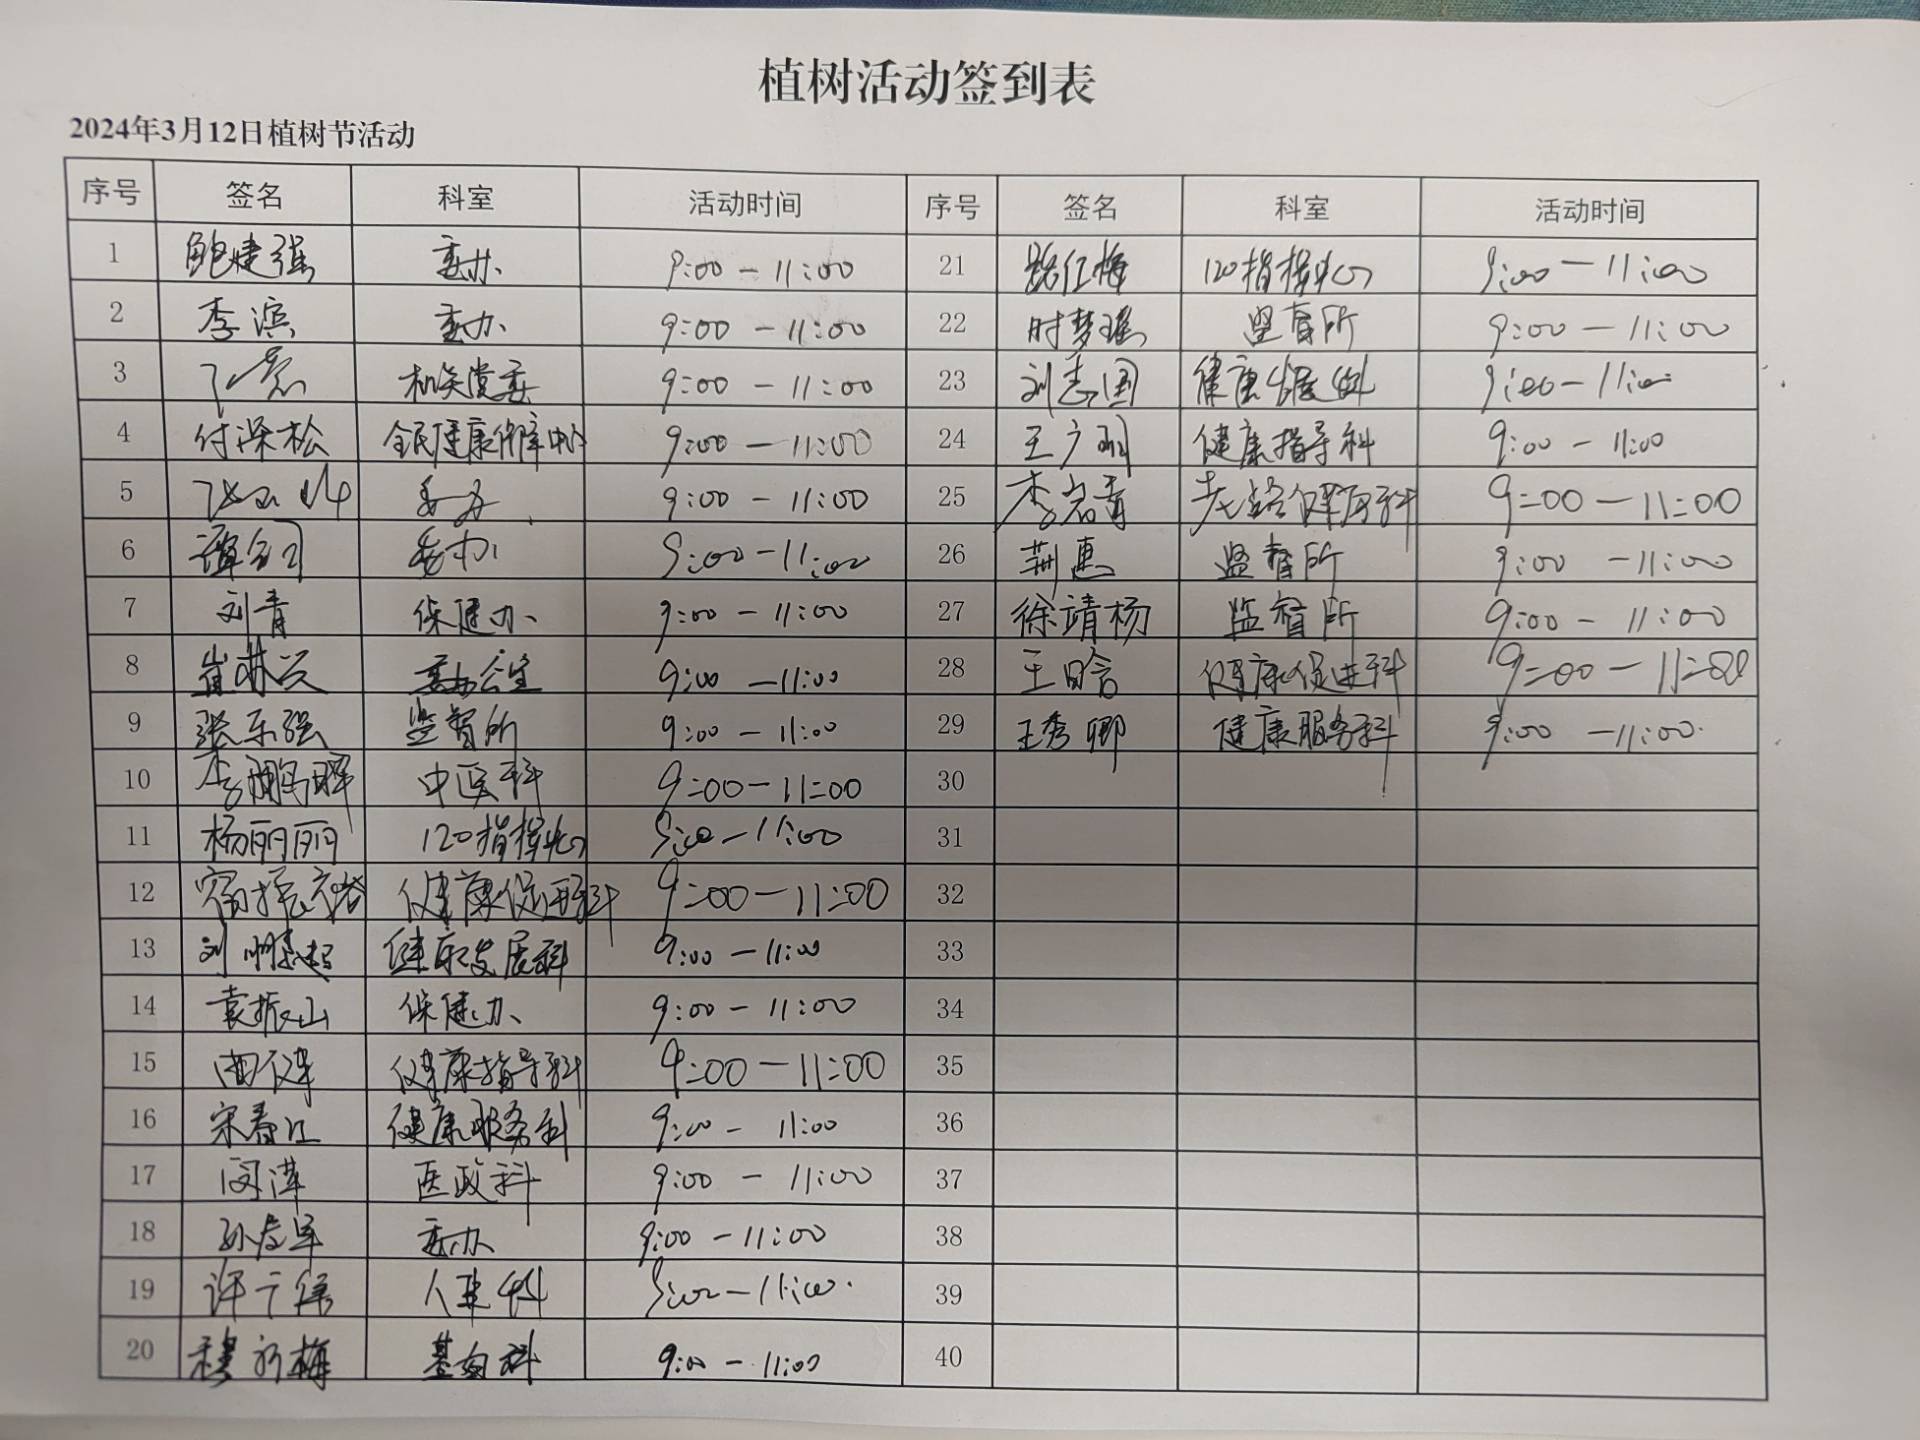 植树活动签到表
2024年3月12日植树节活动
序号 签名 科室 活动时间 序号 签名 科室 活动时间
1 鲍建强 委办 9:00-11:00 21 路红梅 120指挥中心 9:00-11:00
2 李滨 委办 9:00-11:00 22 时梦瑶 监督所 9:00-11:00
3 机关党委 9:00-11:00 23 刘志国 健康发展科 9:00-11:00
4 付深松 全民健康保障中心 9:00-11:00 24 王广刚 健康指导科 9:00-11:00
5 委办 9:00-11:00 25 李岩青 老龄健康科 9:00-11:00
6 委办 9:00-11:00 26 荆惠 监督所 9:00-11:00
7 刘青 保健办 9:00-11:00 27 徐靖杨 监督所 9:00-11:00
8 崔琳 委办公室 9:00-11:00 28 王晗 健康促进科 9:00-11:00
9 张乐强 监督所 9:00-11:00 29 王秀卿 健康服务科 9:00-11:00
10 李鹏晖 中医科 9:00-11:00 30
11 杨丽丽 120指挥中心 9:00-11:00 31
12 健康促进科 9:00-11:00 32
13 刘 健康发展科 9:00-11:00 33
14 袁振山 保健办 9:00-11:00 34
15 曲健 健康指导科 9:00-11:00 35
16 宋春江 健康服务科 9:00-11:00 36
17 闵萍 医政科 9:00-11:00 37
18 孙彦军 委办 9:00-11:00 38
19 许 人事科 9:00-11:00 39
20 穆 梅 基妇科 9:00-11:00 40